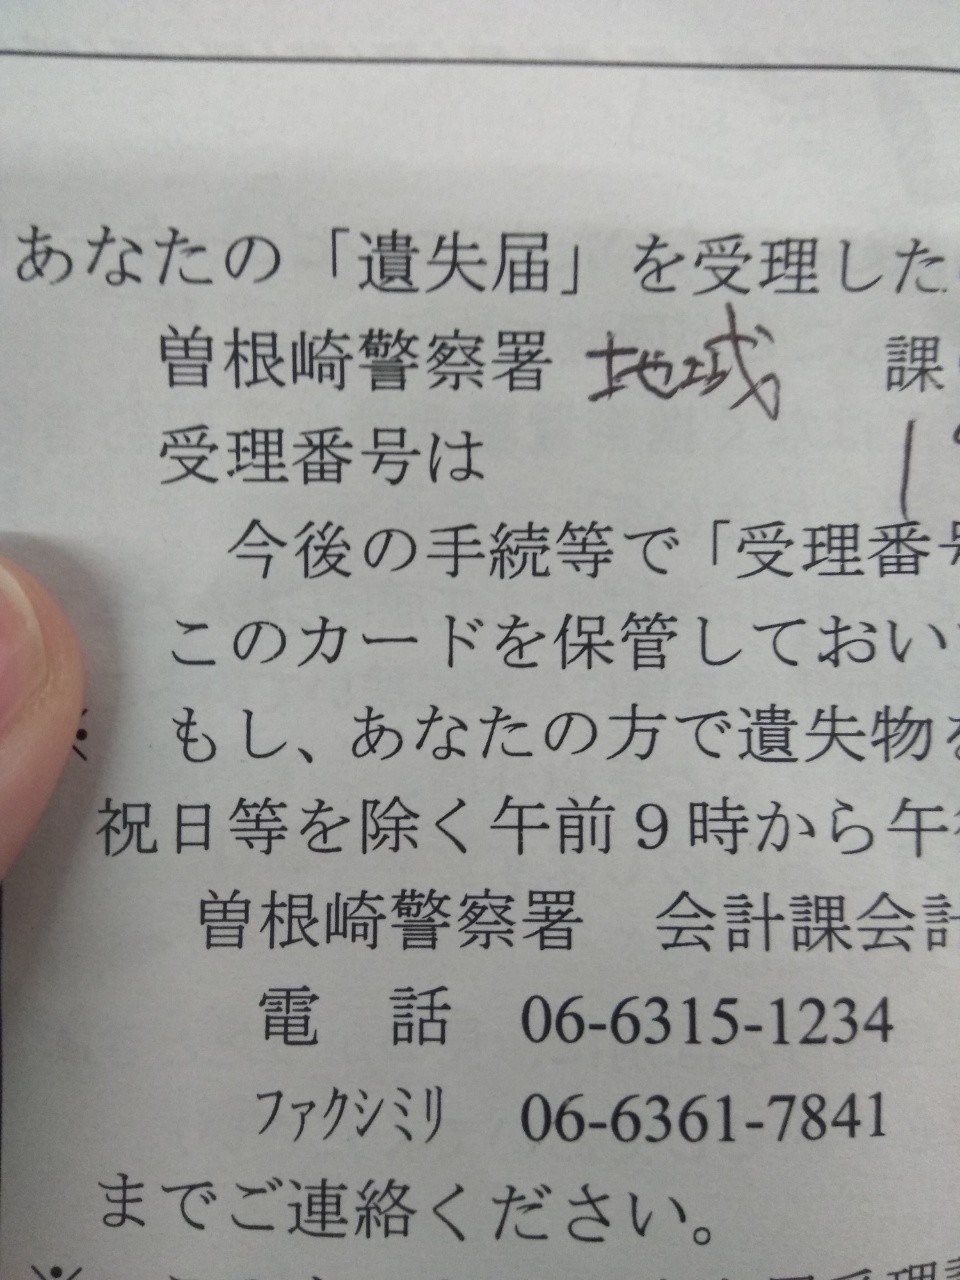 あなたの「遺失届」を受理した
曽根崎警察署 地域 課
受理番号は
今後の手続等で「受理番号
このカードを保管しておい
※ もし、あなたの方で遺失物
祝日等を除く午前9時から午
曽根崎警察署 会計課会計
電 話 06-6315-1234
ファクシミリ 06-6361-7841
までご連絡ください。
※